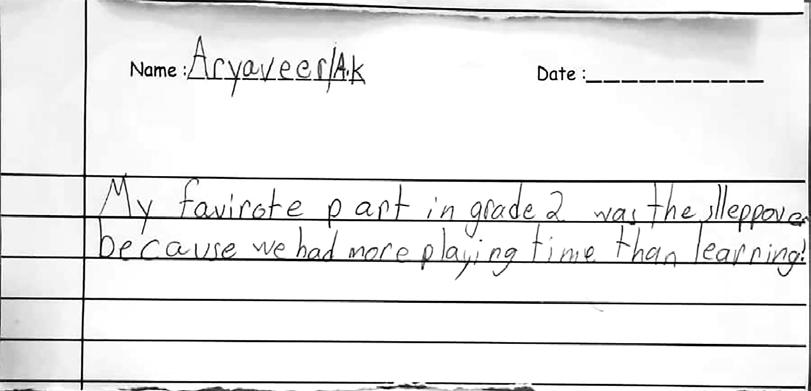 Name : Aryaveer/A.K Date :____________
My favirote part in grade 2 was the slleppover
because we had more playing time than learning!